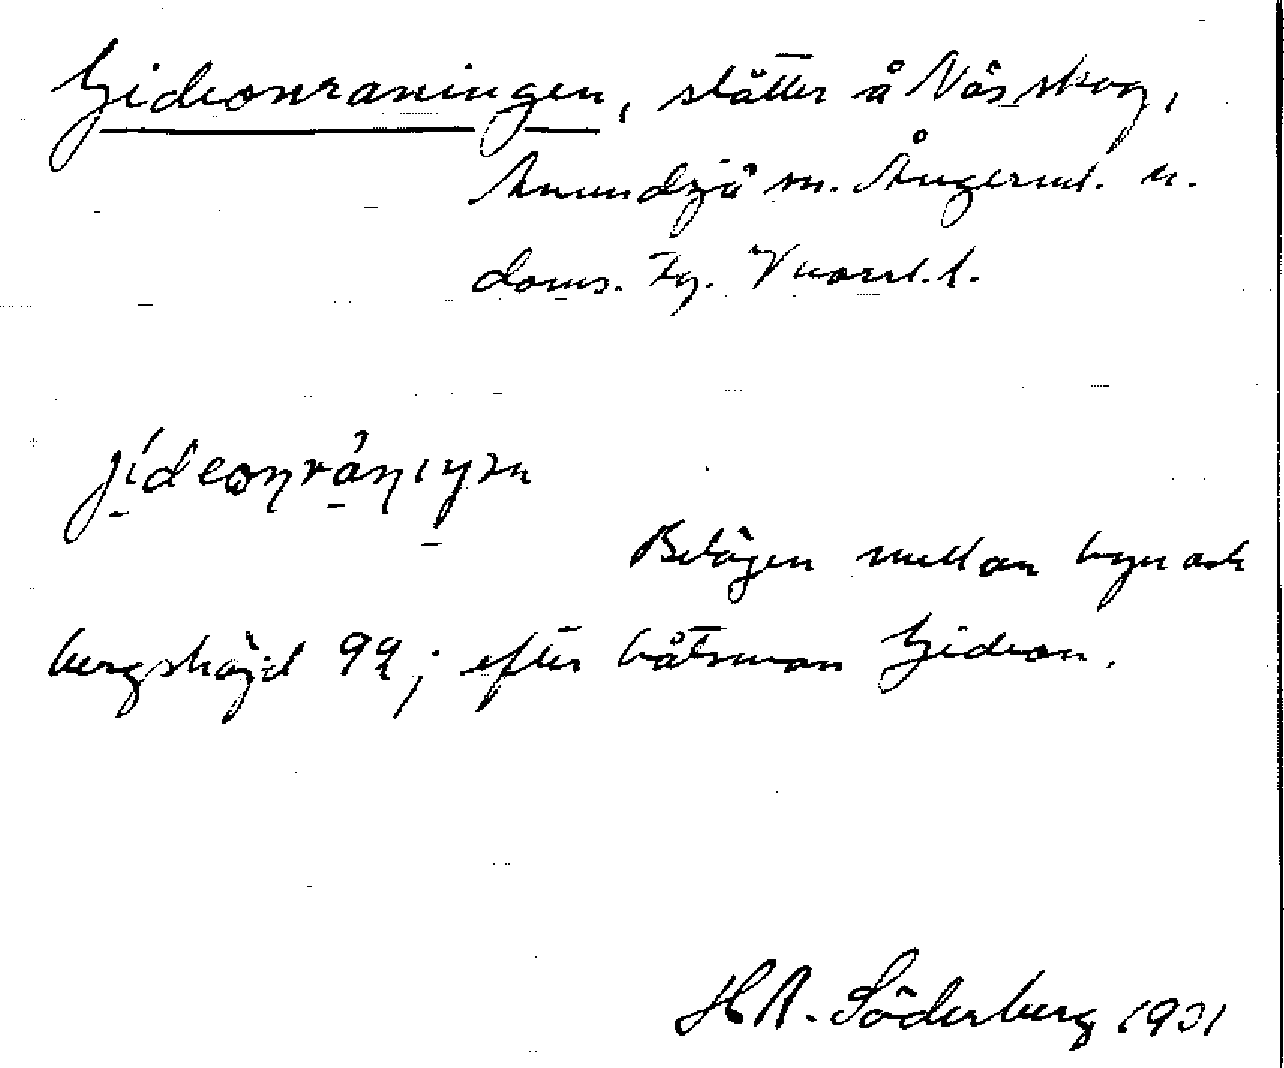 Gideonraningen, slåtter å Näs skog,
Anundsjö sn. Ångerml. n.
doms. Fg. Vnorrl. l.
jídeonrániŋen
Belägen mellan byn och
bergshöjd 99; efter båtsman Gideon.
H A. Söderberg 1931